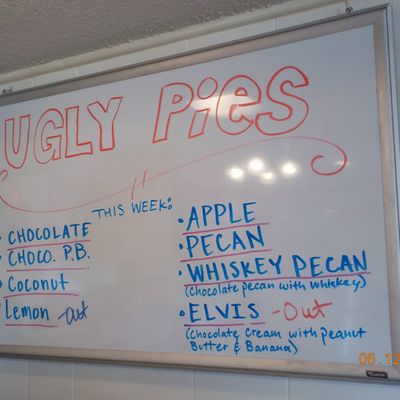 UGLY PieS
THIS WEEK:
• CHOCOLATE
• CHOCO. P.B.
• Coconut
• Lemon - out
• APPLE
• PECAN
• WHISKEY PECAN
(Chocolate pecan with whiskey)
• ELVIS - Out
(Chocolate Cream with peanut
Butter & Banana)
06.12